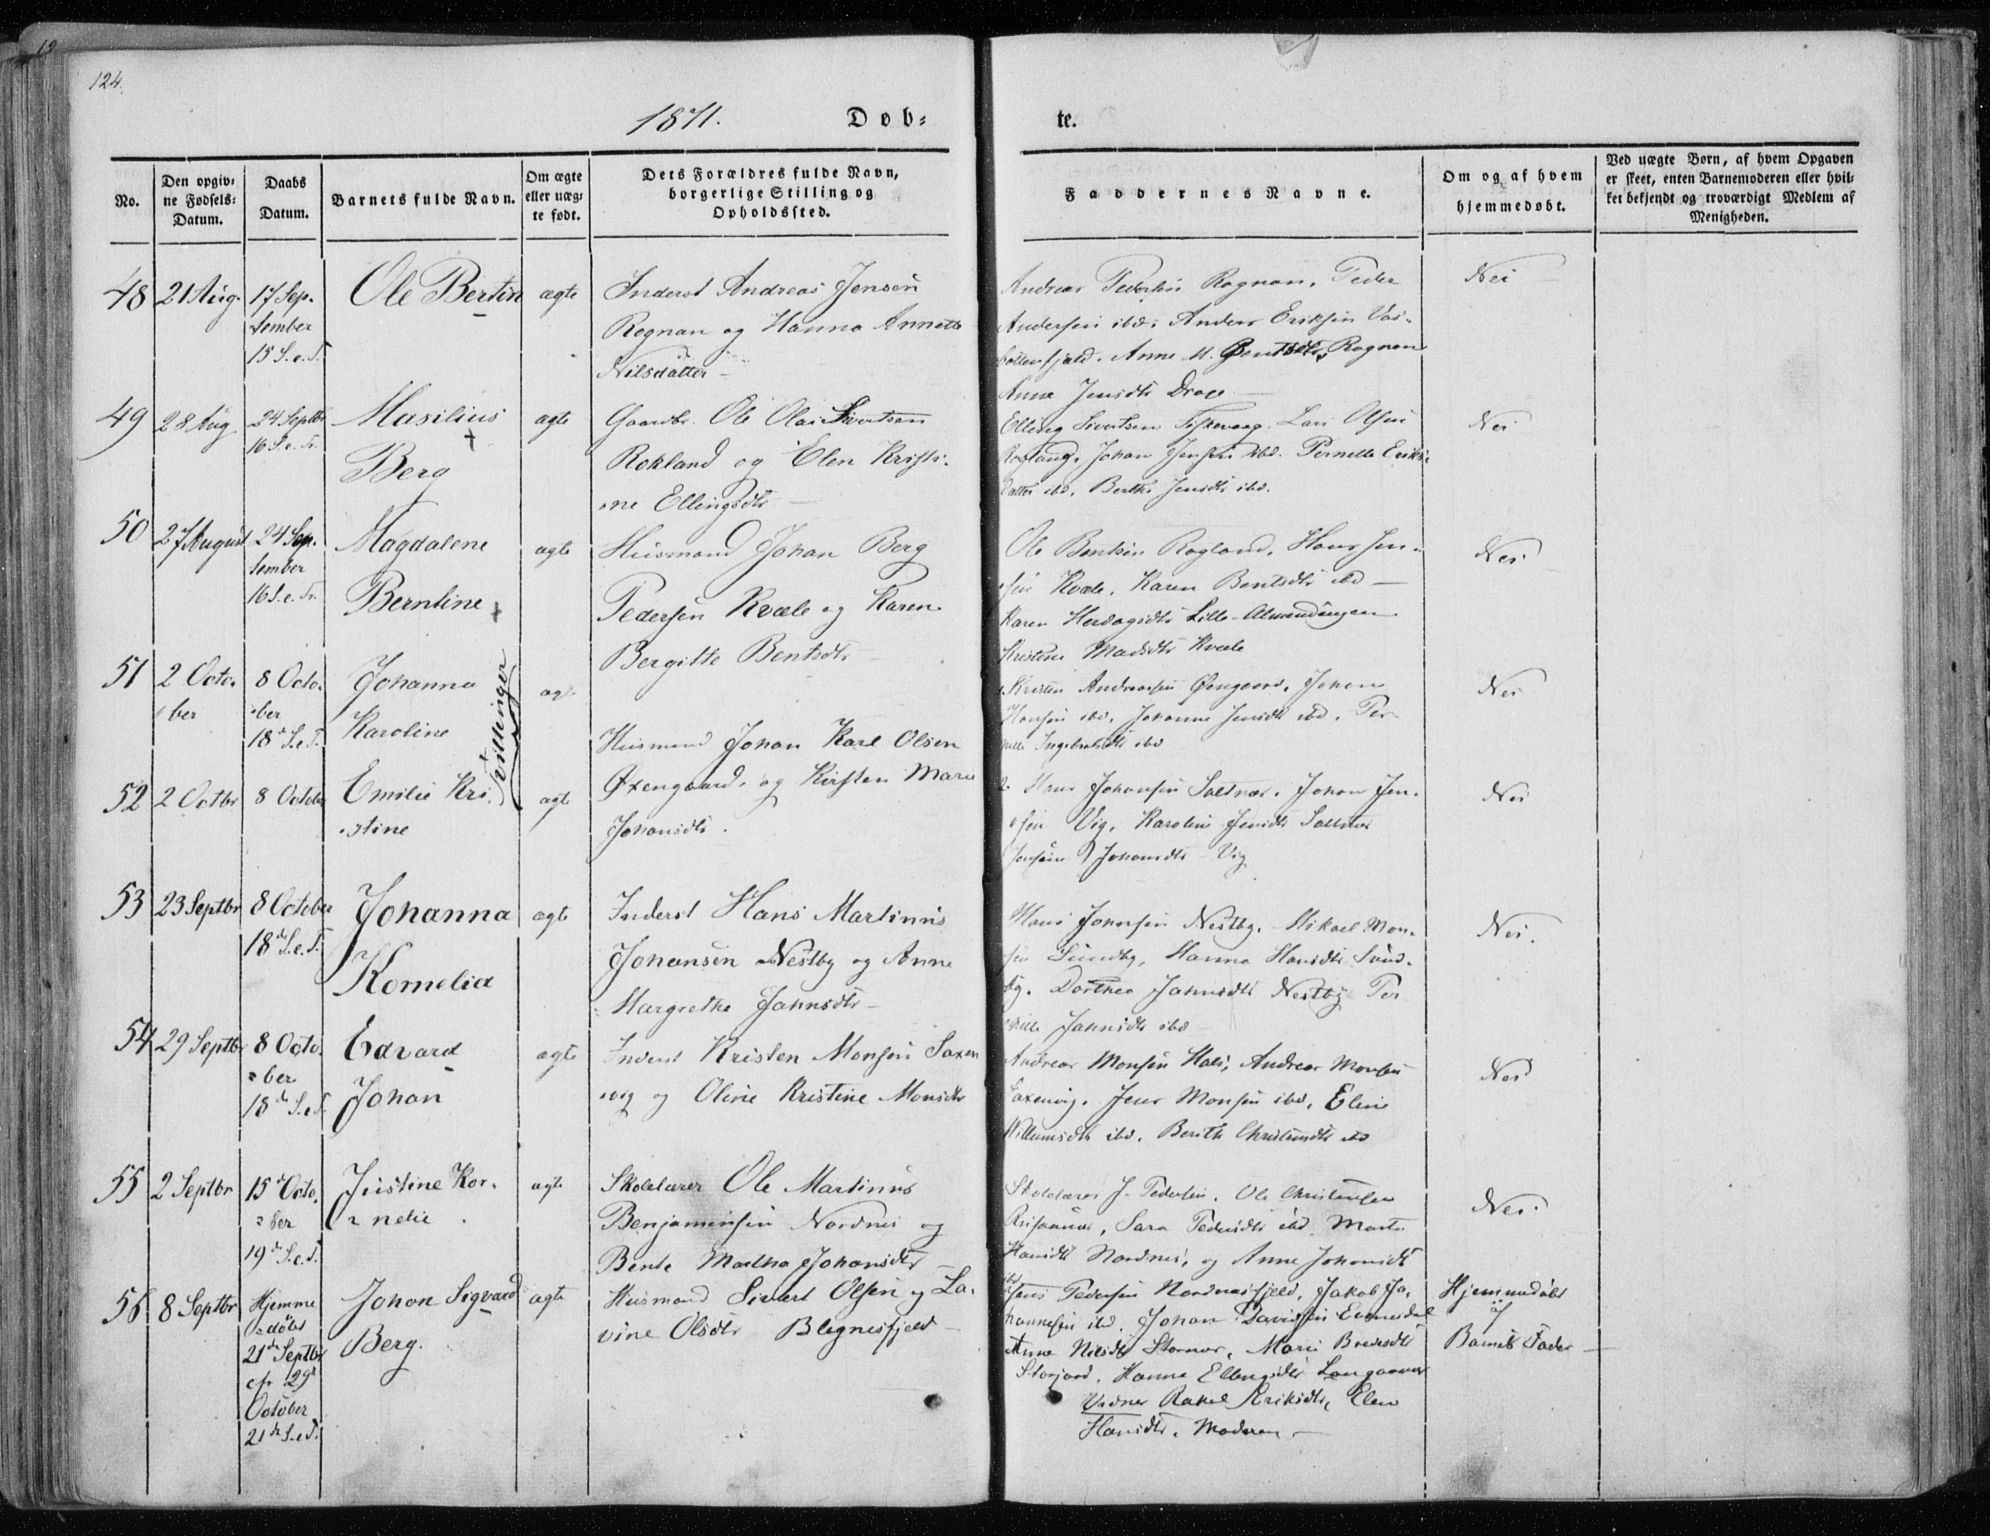 124.
1871.
Døb-
te.
No.
Den opgiv-
ne Fødsels-
Datum.
Daabs
Datum.
Barnets fulde Navn.
Om ægte
eller uæg-
te født.
Dets Forældres fulde Navn,
borgerlige Stilling og
Opholdssted.
Faddernes Navne.
Om og af hvem
hjemmedøbt.
Ved uægte Børn, af hvem Opgaven
er skeet, enten Barnemoderen eller hvil-
ket bekjendt og troværdigt Medlem af
Menigheden.
48
21 Aug.
17 Sep-
tember
15 S. e. T.
Ole Bertin
ægte
Inderst Andreas Jensen
Rognan og Hanna Annette
Nilsdatter
Andreas Pedersen Rognan, Peder
Andersen ibd. Anders Eriksen Vas-
bottenfjeld. Anne M. Rognan
Anne Jensdtr Drage
Nei
49
28 Aug
24 Septbr
16 S. e. Tr.
Masilius
Berg
ægte
Gaardbr. Ole Olai Sivertsen
Rokland og Elen Kristi-
ne Ellingsdtr
Elling Sivertsen Fiskevaag. Lars Olsen
Rogland, Johan Jensen ibd. Pernelle Eriks-
datter ibd. Berthe Jensdtr ibd.
Nei
50
27 August
24 Sep-
tember
16 S. e. Tr.
Magdalene
Berntine
ægte
Husmand Johan Berg
Pedersen Kvæle og Karen
Bergitte Bentsdtr
Ole Bentsen Rogland, Hans Jen-
sen Kvæle, Karen Bentsdtr ibd
Karen Lille-Almendingen
Kristine Madsdtr Kvæle
Nei
51
2 Octo-
ber
8 Octo-
ber
18de S. e. T.
Johanna
Karoline
Tvillinger
ægte
Husmand Johan Karl Olsen
Øxengaard og Kirsten Marie
Johansdtr.
Kristen Andreassen Øxngaard, Johan
Hansen ibd. Johanne Jensdtr ibd. Per-
nille Ingebrigtsdtr ibd
Nei
52
2 Octbr
8 Octobr
Emilie Kri-
stine
ægte
2. Hans Johansen Saltnæs. Johan Jen-
sen Vig, Karoline Jensdtr Saltnæs
Johansdtr Vig
Nei
53
23 Septbr
8 October
18de S. e. T.
Johanna
Kornelia
ægte
Inderst Hans Martinus
Johansen Nestby og Anne
Margrethe Jahnsdtr
Hans Johnsen Nestby. Mikael Mon-
sen Sundby, Hanna Hansdtr Sund-
by. Dorthea Jahnsdtr Nestby Per-
nille Jahnsdtr ibd
Nei.
54
29 Septbr
8 Octo-
ber
18de S. e. T.
Edvard
Johan
ægte
Inderst Kristen Monsen Saxen
vig og Oline Kristine Monsdtr
Andreas Monsen Hals, Andreas Monsen
Saxenvig. Jens Monsen ibd. Eline
Willumsdtr ibd. Berith Christensdtr ibd
Nei
55
2 Septbr
15de Octo-
ber
19de S. e. T.
Justine Kor-
nelie
ægte
Skolelærer Ole Martinus
Benjaminsen Nordnes og
Bente Martha Johansdtr
Skolelærer J. Pedersen. Ole Christensen
Sara Pedersdtr ibd. Marte
Hansdtr Nordnes, og Anne Johansdtr
ibd
Nei.
56
8 Septbr
Hjemme
døbt
21de Septbr
cfr 29de
October
21de S. e. T.
Johan Sigvard
Berg.
ægte
Husmand Sivert Olsen og La-
vine Olsdtr Blegnesfjeld
Hans Pedersen Nordnesfjeld. Jakob Jo-
hannesen ibd. Johan Davidsen Evenesdal
Anne Nilsdtr Stornæs. Maria Bredesdtr
Storjord. Hanne Ellingsdtr Langaanes
Vidner Rakel Eriksdtr, Elen
Hansdtr, Moderen
Hjemmedøbt
af
Barnets Fader